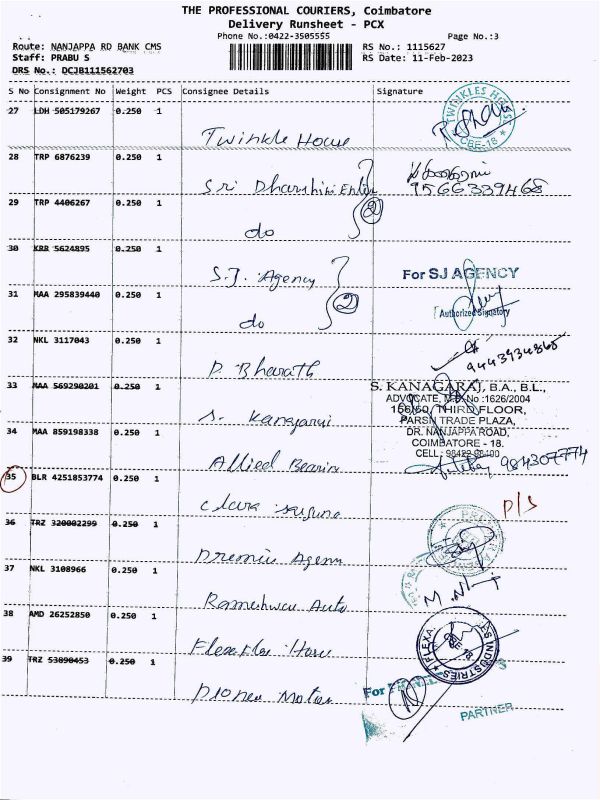 THE PROFESSIONAL COURIERS, Coimbatore
Delivery Runsheet - PCX
Phone No.:0422-3505555 Page No.:3
Route: NANJAPPA RD BANK CMS RS No.: 1115627
Staff: PRABU S RS Date: 11-Feb-2023
DRS No.: DCJB111562703
S No Consignment No Weight PCS Consignee Details Signature
27 LDH 505179267 0.250 1
TWINKLES HOUSE CBE-18
Twinkle House
28 TRP 6876239 0.250 1
Sri Dharshini Enter 9566339468
29 TRP 4406267 0.250 1
2
do
30 KRR 5624895 0.250 1
S.J. Agency For SJ AGENCY
31 MAA 295839440 0.250 1
2 Authorized Signatory
do
32 NKL 3117043 0.250 1
P. Bharath
33 MAA 569290201 0.250 1
S. KANAGARAJ, B.A., B.L.,
ADVOCATE, No :1626/2004
156/60, THIRD FLOOR,
PARSN TRADE PLAZA,
DR. NANJAPPA ROAD,
COIMBATORE - 18.
CELL: 98422-98400
S.
34 MAA 859198338 0.250 1
Allied
35 BLR 4251853774 0.250 1
P/S
Clara
36 TRZ 320002299 0.250 1
37 NKL 3108966 0.250 1
Auto
38 AMD 26252850 0.250 1
FLEXA INDUSTRIES
39 TRZ 53890453 0.250 1
For
PARTNER